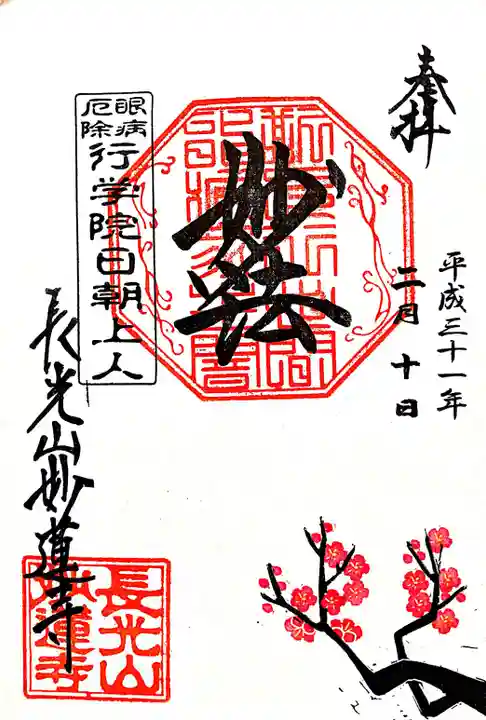 奉拝
平成三十一年
二月十日
妙法
眼病
厄除
行学院日朝上人
長光山妙蓮寺
長光山
妙蓮寺